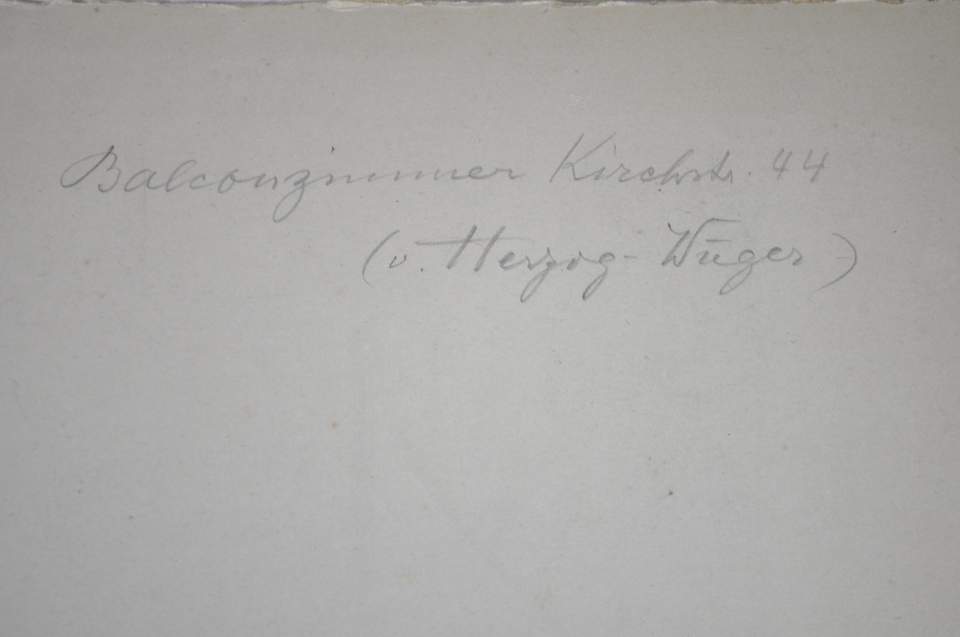 Balconzimmer Kirchstr. 44
(v. Herzog-Wüger)